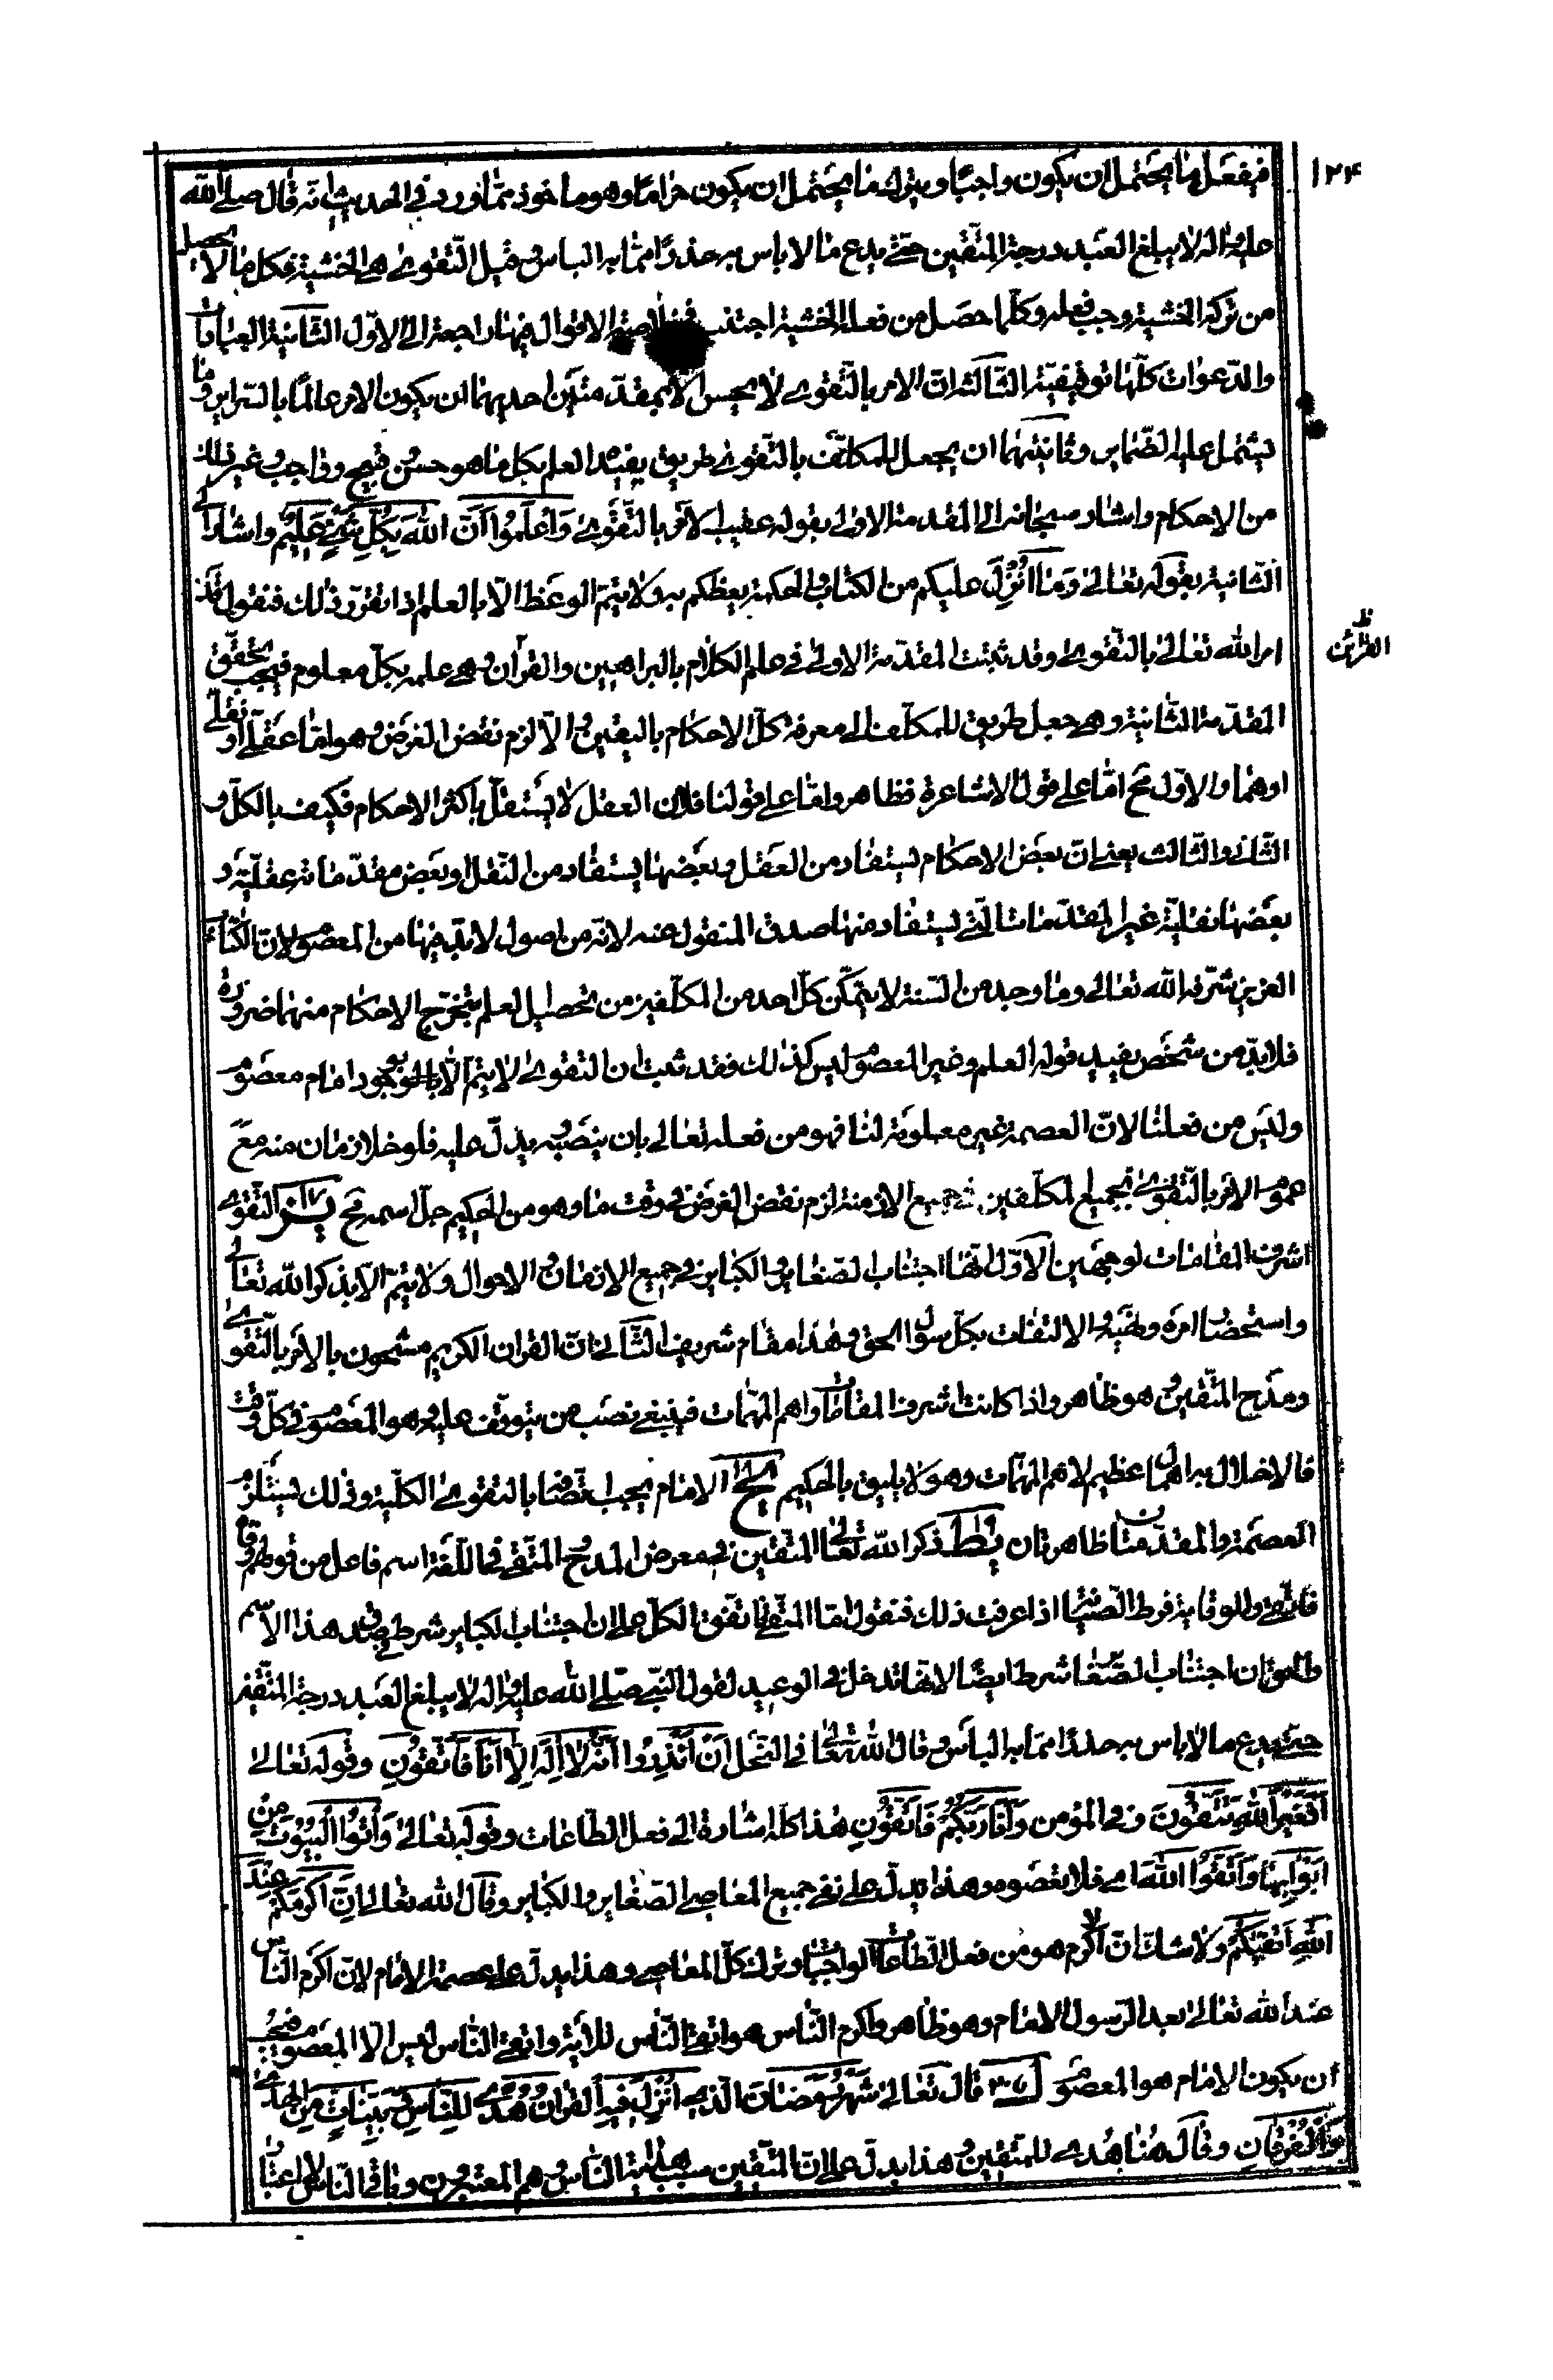 ١٢٤
فيفعل ما يحتمل ان يكون واجبًا ويترك ما يحتمل ان يكون حرامًا وهو ماخوذ ممّا ورد في الحديث انّه قال صلى الله
عليه واله لا يبلغ العبد درجة المتّقين حتى يدع ما لا باس به حذرًا ممّا به الباس وقيل التّقوى هى الخشية فكل ما لا يحصل
من تركه الخشية وجب فعله وكلّما حصل من فعله الخشية اجتنب الاقوال فيها راجعة الى الاوّل الثّانية العبادات
والدّعوات كلّها توقيفيّة الثّالثة انّ الامر بالتّقوى لا يحسن الّا بمقدّمتين احديهما ان يكون الامر عالمًا بالسّراير وما
يشتمل عليه الضّماير وثانيتهما ان يجعل للمكلّف بالتّقوى طريق يفيد العلم بكل ما هو حسن وقبيح وواجب وغير ذلك
من الاحكام واشار سبحانه الى المقدمة الاولى بقوله عقيب الامر بالتّقوى وَاعْلَمُوا أَنَّ اللهَ بِكُلِّ شَيْءٍ عَلِيمٌ واشار الى
الثّانية بقوله تعالى وَمَا أَنْزَلَ عليكم من الكتاب والحكمة يعظكم به ولا يتمّ الوعظ الّا بالعلم اذا تقرّر ذلك فنقول قد
امر الله تعالى بالتّقوى وقد ثبتت المقدّمة الاولى فى علم الكلام بالبراهين والقرآن وهى علمه بكلّ معلوم فيجب تحقّق
المقدّمة الثّانية وهى جعل طريق للمكلّف الى معرفة كلّ الاحكام باليقين والّا لزم نقض الغرض وهو امّا عقلّى او نقلّى
اوهما والاوّل مح امّا على قول الاشاعرة فظاهر وامّا على قولنا فلان العقل لا يستقلّ باكثر الاحكام فكيف بالكلّ و
الثّانى والثّالث يعنى انّ بعض الاحكام يستفاد من العقل وبعضها يستفاد من النّقل او بعض مقدّماته عقليّة و
بعضها نقليّة غير المقدّمات الّتى يستفاد منها صدق المنقول عنه لانّه من اصول لا بدّ فيها من المعصوم لانّ الكتاب
العزيز شرّفه الله تعالى وما وجد من السّنة لا يتمكّن كلّ احد من المكلّفين من تحصيل العلم بتخرّج الاحكام منهما ضرورة
فلا بدّ من شخص يفيد قوله العلم وغير المعصوم ليس كذلك فقد ثبت ان التقوى لا يتمّ الّا بوجود امام معصوم
وليس من فعلنا لانّ العصمة غير معلومة لنا فهو من فعله تعالى بان ينصبه ويدلّ عليه فلو خلا زمان منه مع
عموم الامر بالتّقوى لجميع المكلّفين فى جميع الازمنة لزم نقض الغرض فى وقت ما وهو من الحكيم جلّ اسمه مح التّقوى
اشرف المقامات لوجهين الاوّل انّها اجتناب الصّغاير والكباير فى جميع الازمان والاحوال ولا يتمّ الّا بذكر الله تعالى
واستحضار امره ونهيه والالتفات بكلّ سول الحق وهذا مقام شريف الثّانى انّ القران الكريم مشحون بالامر بالتّقوى
ومدح المتّقين وهو ظاهر واذا كانت اشرف المقامات واهم المهمّات فينبغى نصب من يتوقّف عليه وهو المعصوم فى كلّ وقت
فالاخلال به اهمال عظيم لاهم المهمّات وهو لا يليق بالحكيم الامام يجب اتّصافه بالتقوى الكلّية وذلك يستلزم
العصمة والمقدّمتان ظاهرتان ذكر الله تعالى المتّقين فى معرض المدح والمتّقى فى اللّغة اسم فاعل من قولهم وقاه
فاتّقى والوقاية فرط الصّيانة اذا عرفت ذلك فنقول امّا المتّقى فاتّفق الكلّ على ان اجتناب الكباير شرط فى صدق هذا الاسم
والحق ان اجتناب الصّغاير شرط ايضًا لانّها تدخل فى الوعيد لقول النّبى صلّى الله عليه واله لا يبلغ العبد درجة المتّقين
حتّى يدع ما لا باس به حذرًا ممّا به الباس وقال الله تعالى فى النّحل أَنْ أَنْذِرُوا أَنَّهُ لَا إِلَهَ إِلَّا أَنَا فَاتَّقُونِ وقوله تعالى
أَفَغَيْرَ اللهِ تَتَّقُونَ وفى المؤمن وَأَنَا رَبُّكُمْ فَاتَّقُونِ هذا كلّه اشارة الى فعل الطّاعات وقوله تعالى وَأْتُوا الْبُيُوتَ مِنْ
أَبْوَابِهَا وَاتَّقُوا اللهَ اى فلا تعصوه وهذا يدلّ على نفى جميع المعاصى الصّغاير والكباير وقال الله تعالى إِنَّ أَكْرَمَكُمْ عِنْدَ
اللهِ أَتْقَيكُمْ ولا شكّ انّ الاكرم هو من فعل الطّاعات الواجبات وترك كلّ المعاصى وهذا يدلّ على عصمة الامام لانّ اكرم النّاس
عند الله تعالى بعد الرّسول الامام وهو ظاهر واكرم النّاس هو اتقى النّاس للاية واتقى النّاس ليس الّا المعصوم فيجب
أن يكون الامام هو المعصوم قال تعالى شَهْرُ رَمَضَانَ الَّذِى أُنْزِلَ فِيهِ الْقُرْآنُ هُدًى لِلنَّاسِ وَبَيِّنَاتٍ مِنَ الْهُدَى
وَالْفُرْقَانِ وقال هُنا هُدى للمتّقين وهذا يدلّ على انّ المتّقين سبب هداية النّاس وهم المعتبرون وباقى النّاس لا اعتبار